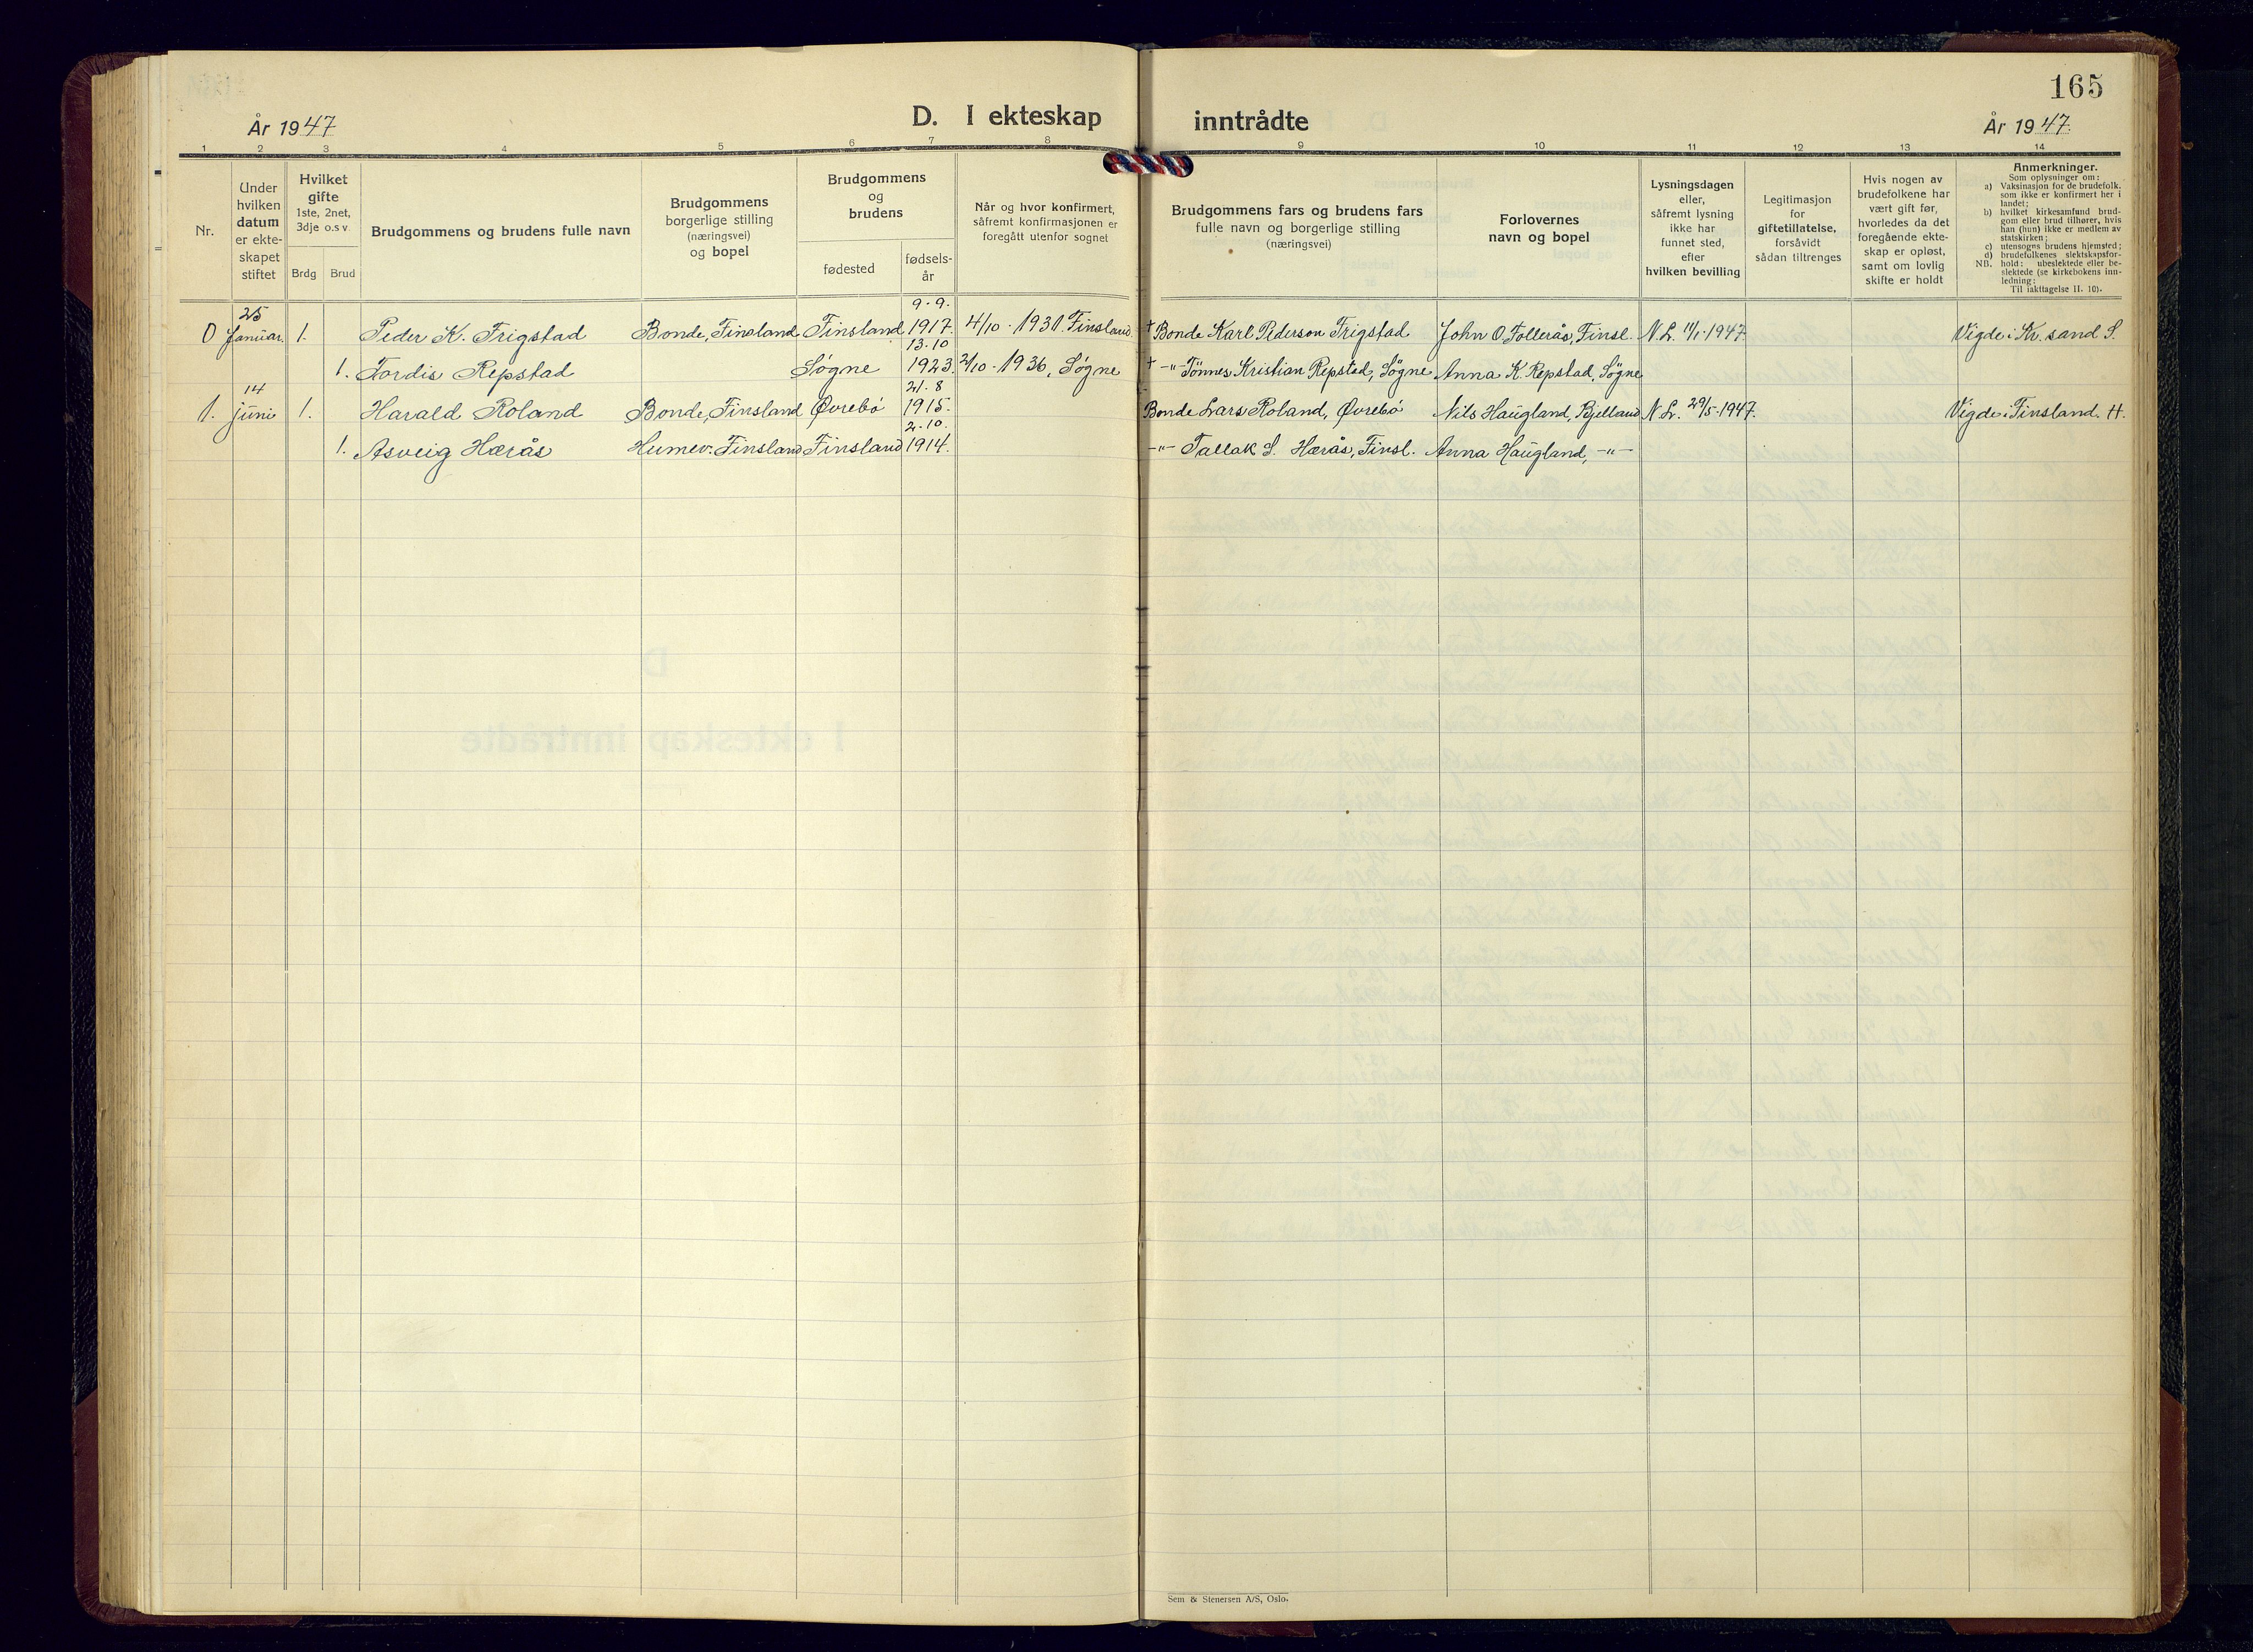 165
År 1947
D. I ekteskap inntrådte
År 1947.
1 2 3 4 5 6 7 8 9 10 11 12 13 14
Nr.
Under hvilken datum er ekte-skapet stiftet
Hvilket gifte 1ste, 2net, 3dje o.s v.
Brdg Brud
Brudgommens og brudens fulle navn
Brudgommens borgerlige stilling (næringsvei) og bopel
Brudgommens og brudens
fødested
fødsels-år
Når og hvor konfirmert, såfremt konfirmasjonen er foregått utenfor sognet
Brudgommens fars og brudens fars fulle navn og borgerlige stilling (næringsvei)
Forlovernes navn og bopel
Lysningsdagen eller, såfremt lysning ikke har funnet sted, efter hvilken bevilling
Legitimasjon for giftetillatelse, forsåvidt sådan tiltrenges
Hvis nogen av brudefolkene har vært gift før, hvorledes da det foregående ekte-skap er opløst, samt om lovlig skifte er holdt
Anmerkninger.
Som oplysninger om:
a) Vaksinasjon for de brudefolk, som ikke er konfirmert her i landet;
b) hvilket kirkesamfund brud-gom eller brud tilhører, hvis han (hun) ikke er medlem av statskirken;
c) utensogns brudens hjemsted;
d) brudefolkenes slektskapsfor-hold: ubeslektede eller be-slektede (se kirkebokens inn-ledning;
NB.
Til iakttagelse II. 10).
0 25 Januar. 1. Peder K. Trigstad Bonde, Finsland Finsland 9-9. 1917. 4/10-1931. Finsland † Bonde Karl Pederson Trigstad John O. Follerås, Finsl. N.L. 11/1-1947. Vigde i Kr.sand S.
1. Tordis Repstad Søgne 13-10 1923. 2/10-1936, Søgne † -"- Tønnes Kristian Repstad, Søgne Anna K. Repstad, Søgne
1. 14 juni 1. Harald Roland Bonde, Finsland Øvrebø 21-8 1915. Bonde Lars Roland, Øvrebø Nils Haugland, Bjelland N.L. 29/5-1947. Vigde i Finsland. H.
1. Asveig Hærås Husmor. Finsland Finsland 2-10. 1914. -"- Tallak S. Hærås, Finsl. Anna Haugland, -"-
Sem & Stenersen A/S, Oslo.